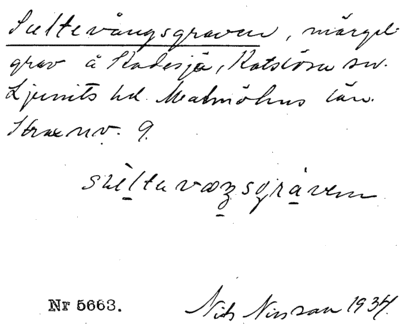 Sultevångsgraven, märgel-
grav å Skadesjö, Katslösa sn.
Ljunits hd. Malmöhus län.
Strax n.v. 9.
Nr 5663.
Nils Nilsson 1934.